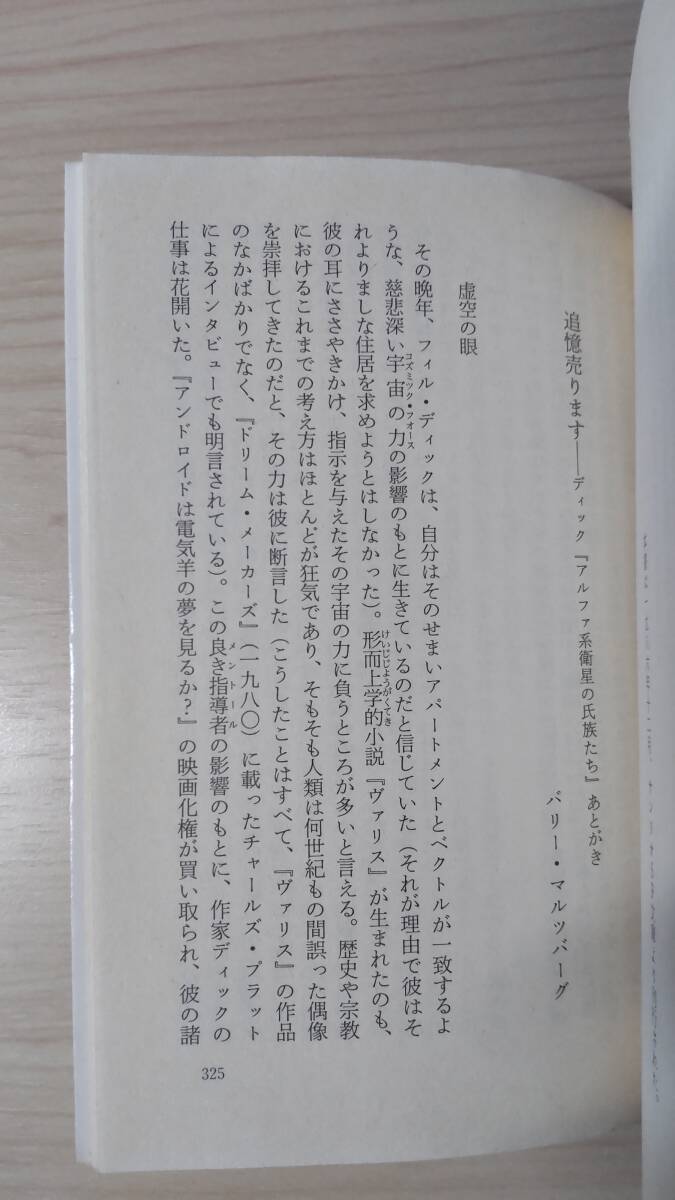 追憶売ります――ディック『アルファ系衛星の氏族たち』あとがき
バリー・マルツバーグ
虚空の眼
その晩年、フィル・ディックは、自分はそのせまいアパートメントとベクトルが一致するよ
うな、慈悲深い宇宙の力コズミック・フォースの影響のもとに生きているのだと信じていた（それが理由で彼はそ
れよりましな住居を求めようとはしなかった）。形而上学的けいじじょうがくてき小説『ヴァリス』が生まれたのも、
彼の耳にささやきかけ、指示を与えたその宇宙の力に負うところが多いと言える。歴史や宗教
におけるこれまでの考え方はほとんどが狂気であり、そもそも人類は何世紀もの間誤った偶像
を崇拝してきたのだと、その力は彼に断言した（こうしたことはすべて、『ヴァリス』の作品
のなかばかりでなく、『ドリーム・メーカーズ』（一九八〇）に載ったチャールズ・プラット
によるインタビューでも明言されている）。この良き指導者メントールの影響のもとに、作家ディックの
仕事は花開いた。『アンドロイドは電気羊の夢を見るか？』の映画化権が買い取られ、彼の諸
325